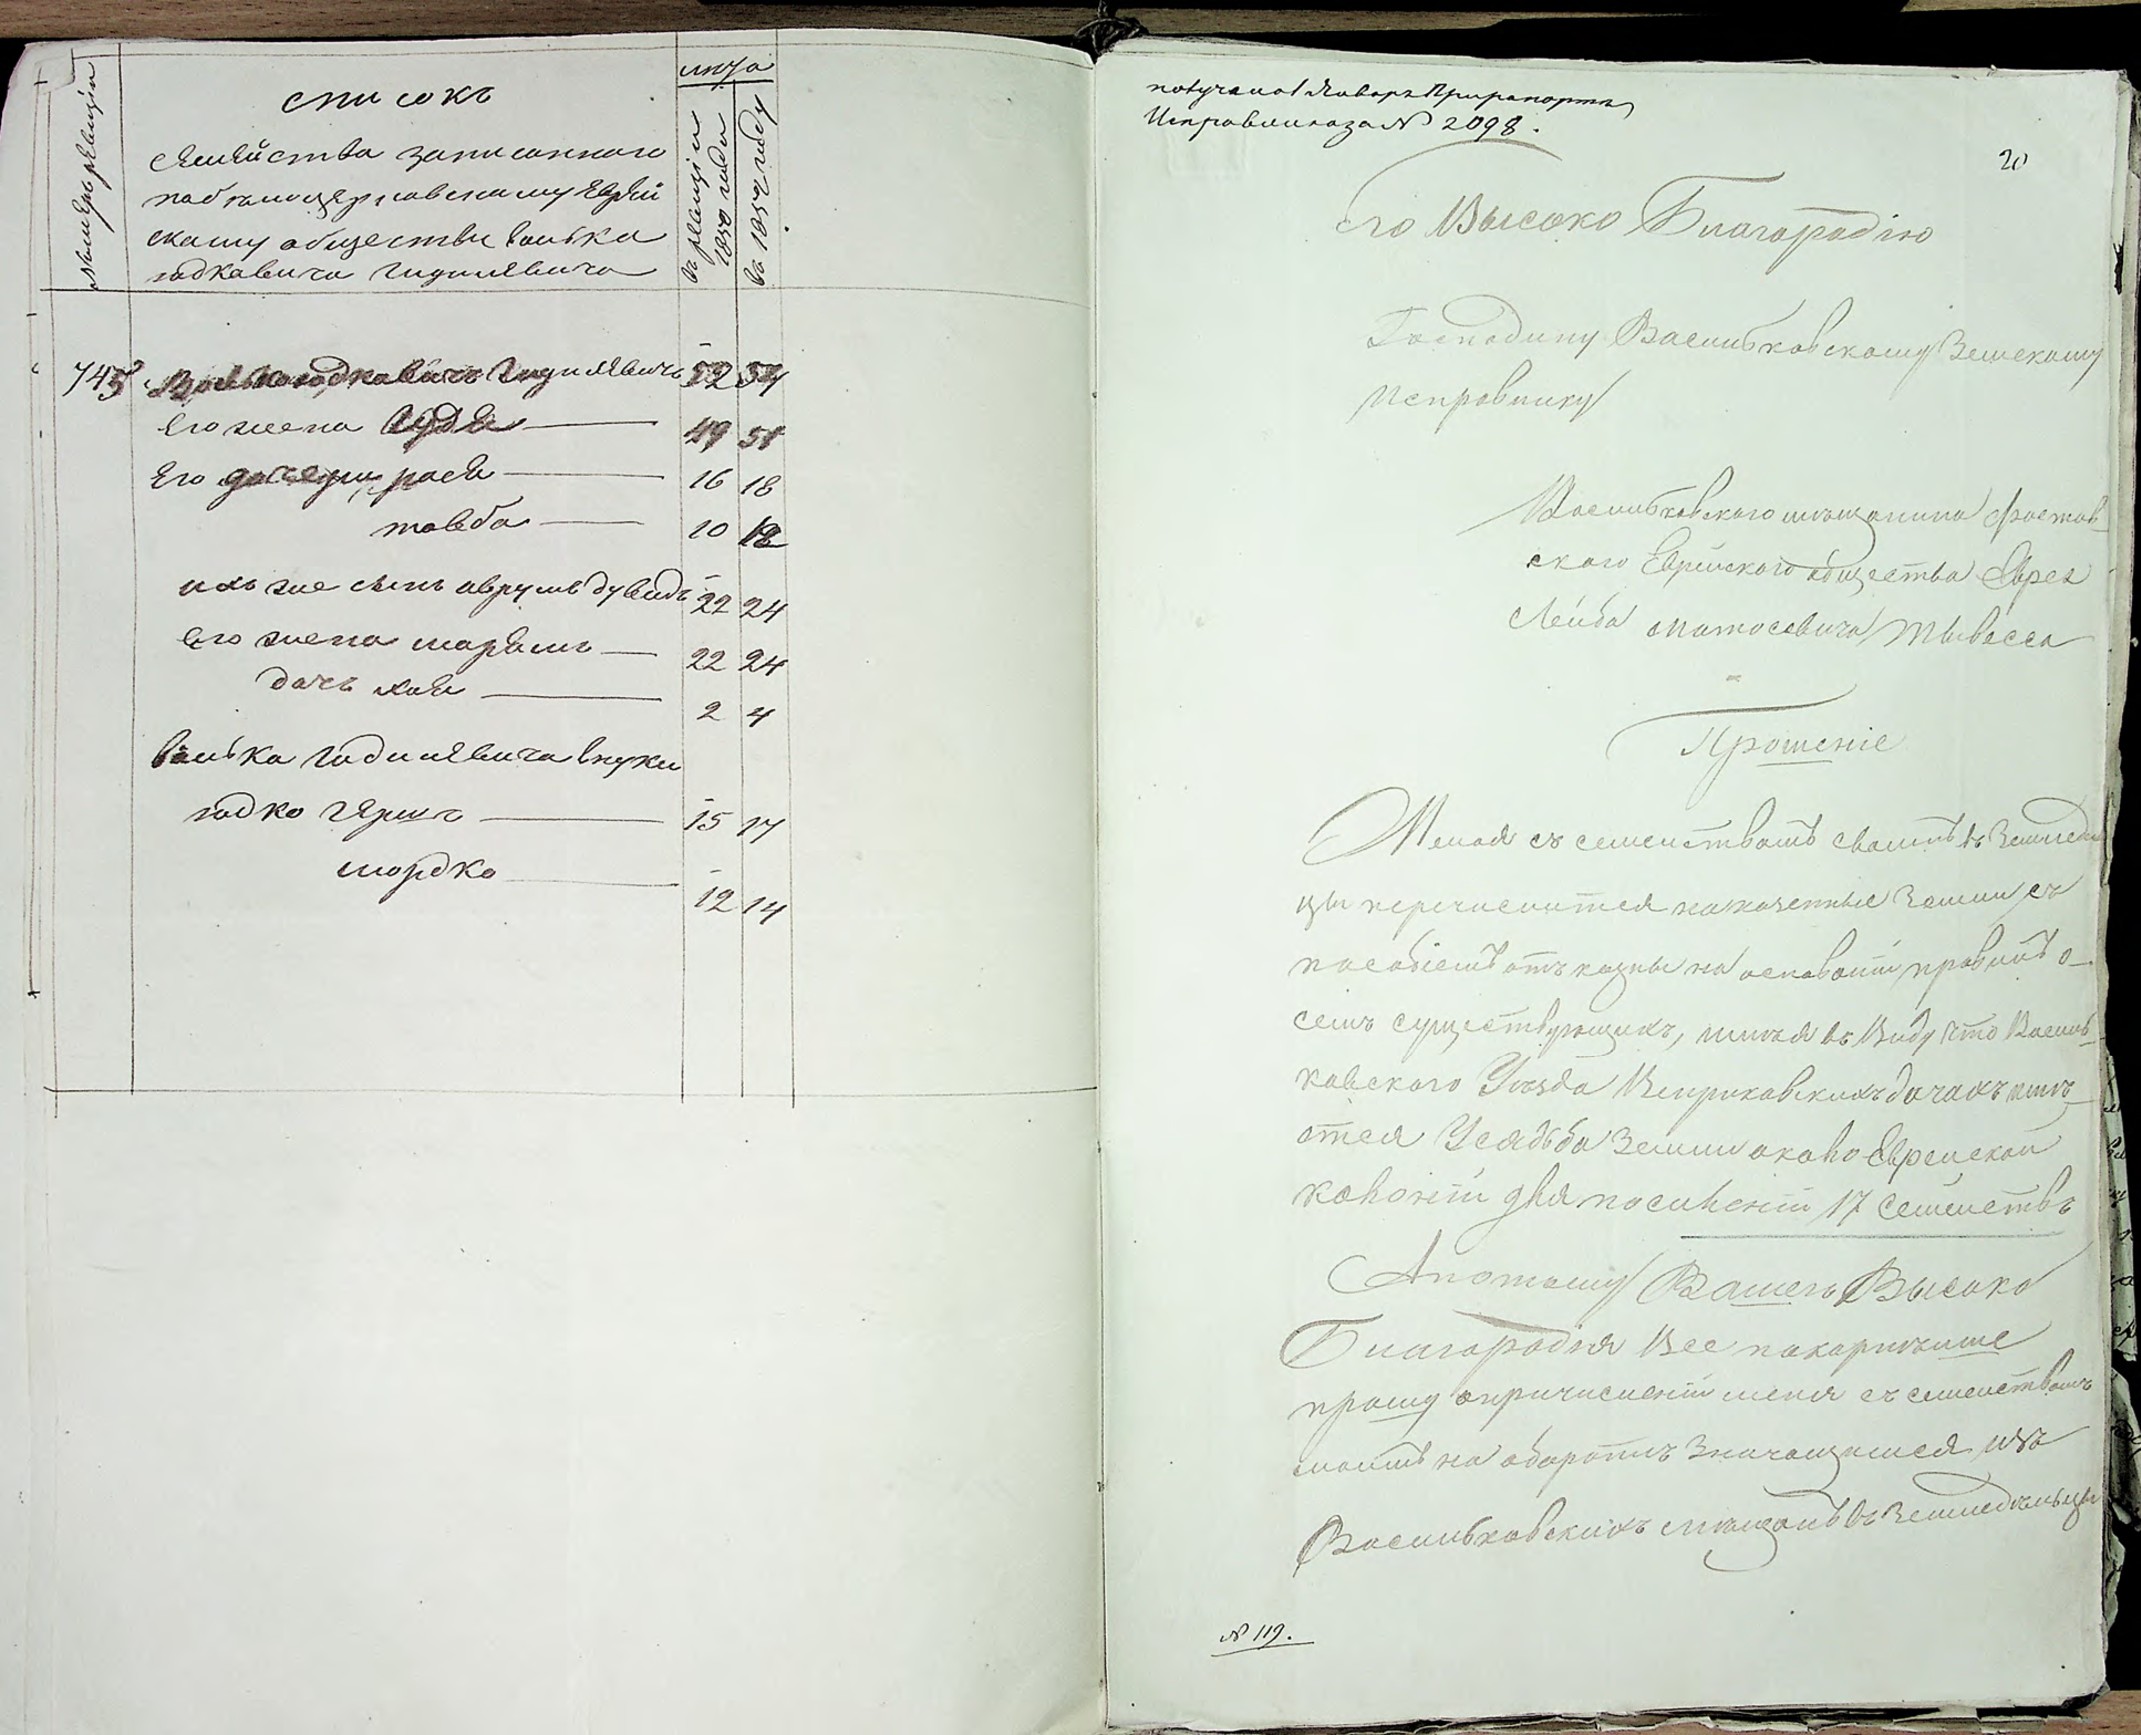 Номеръ ревизіи
списокъ
семейства записанного
по белоцерковскому еврей
скому обществу волька
іодковича гидилевича
лета
въ ревизіи 1850 года
въ 1852 году
745 Волько іодковичъ гидилевичъ 52 54
его жена 49 51
Его дочери рася 16 18
товба 10 12
ихъ же сынъ аврумъ дувидъ 22 24
его жена марьямъ 22 24
дочь хая 2 4
волька гидилевича внуки
іодко гершъ 15 17
мордко 12 14
получено 1 Января При рапорте
Исправника за № 2098.
20
Его Высоко Благородію
Господину Васильковскому Земскому
Исправнику
Васильковского мѣщанина Фастов-
ского Еврейского общества Еврея
Лейба
Прошеніе
Желая съ семействомъ своимъ въ Земледѣль
цы перечислится на казенные Земли съ
пособіемъ отъ казны на основаніи правилъ о-
семъ существующихъ, имѣя въ Виду что Василь-
ковского Уѣзда Веприковскихъ дачахъ имѣ-
ется Усадьба Земли около Еврейской
колоніи для поселеніи 17 Семействъ
А потому Вашего Высоко
Благородія Все покорнѣйше
прошу о причисленіи меня съ семействомъ
моимъ на оборотѣ Значащимся изъ
Васильковскихъ мѣщанъ въ Земледѣльцы
№ 119.